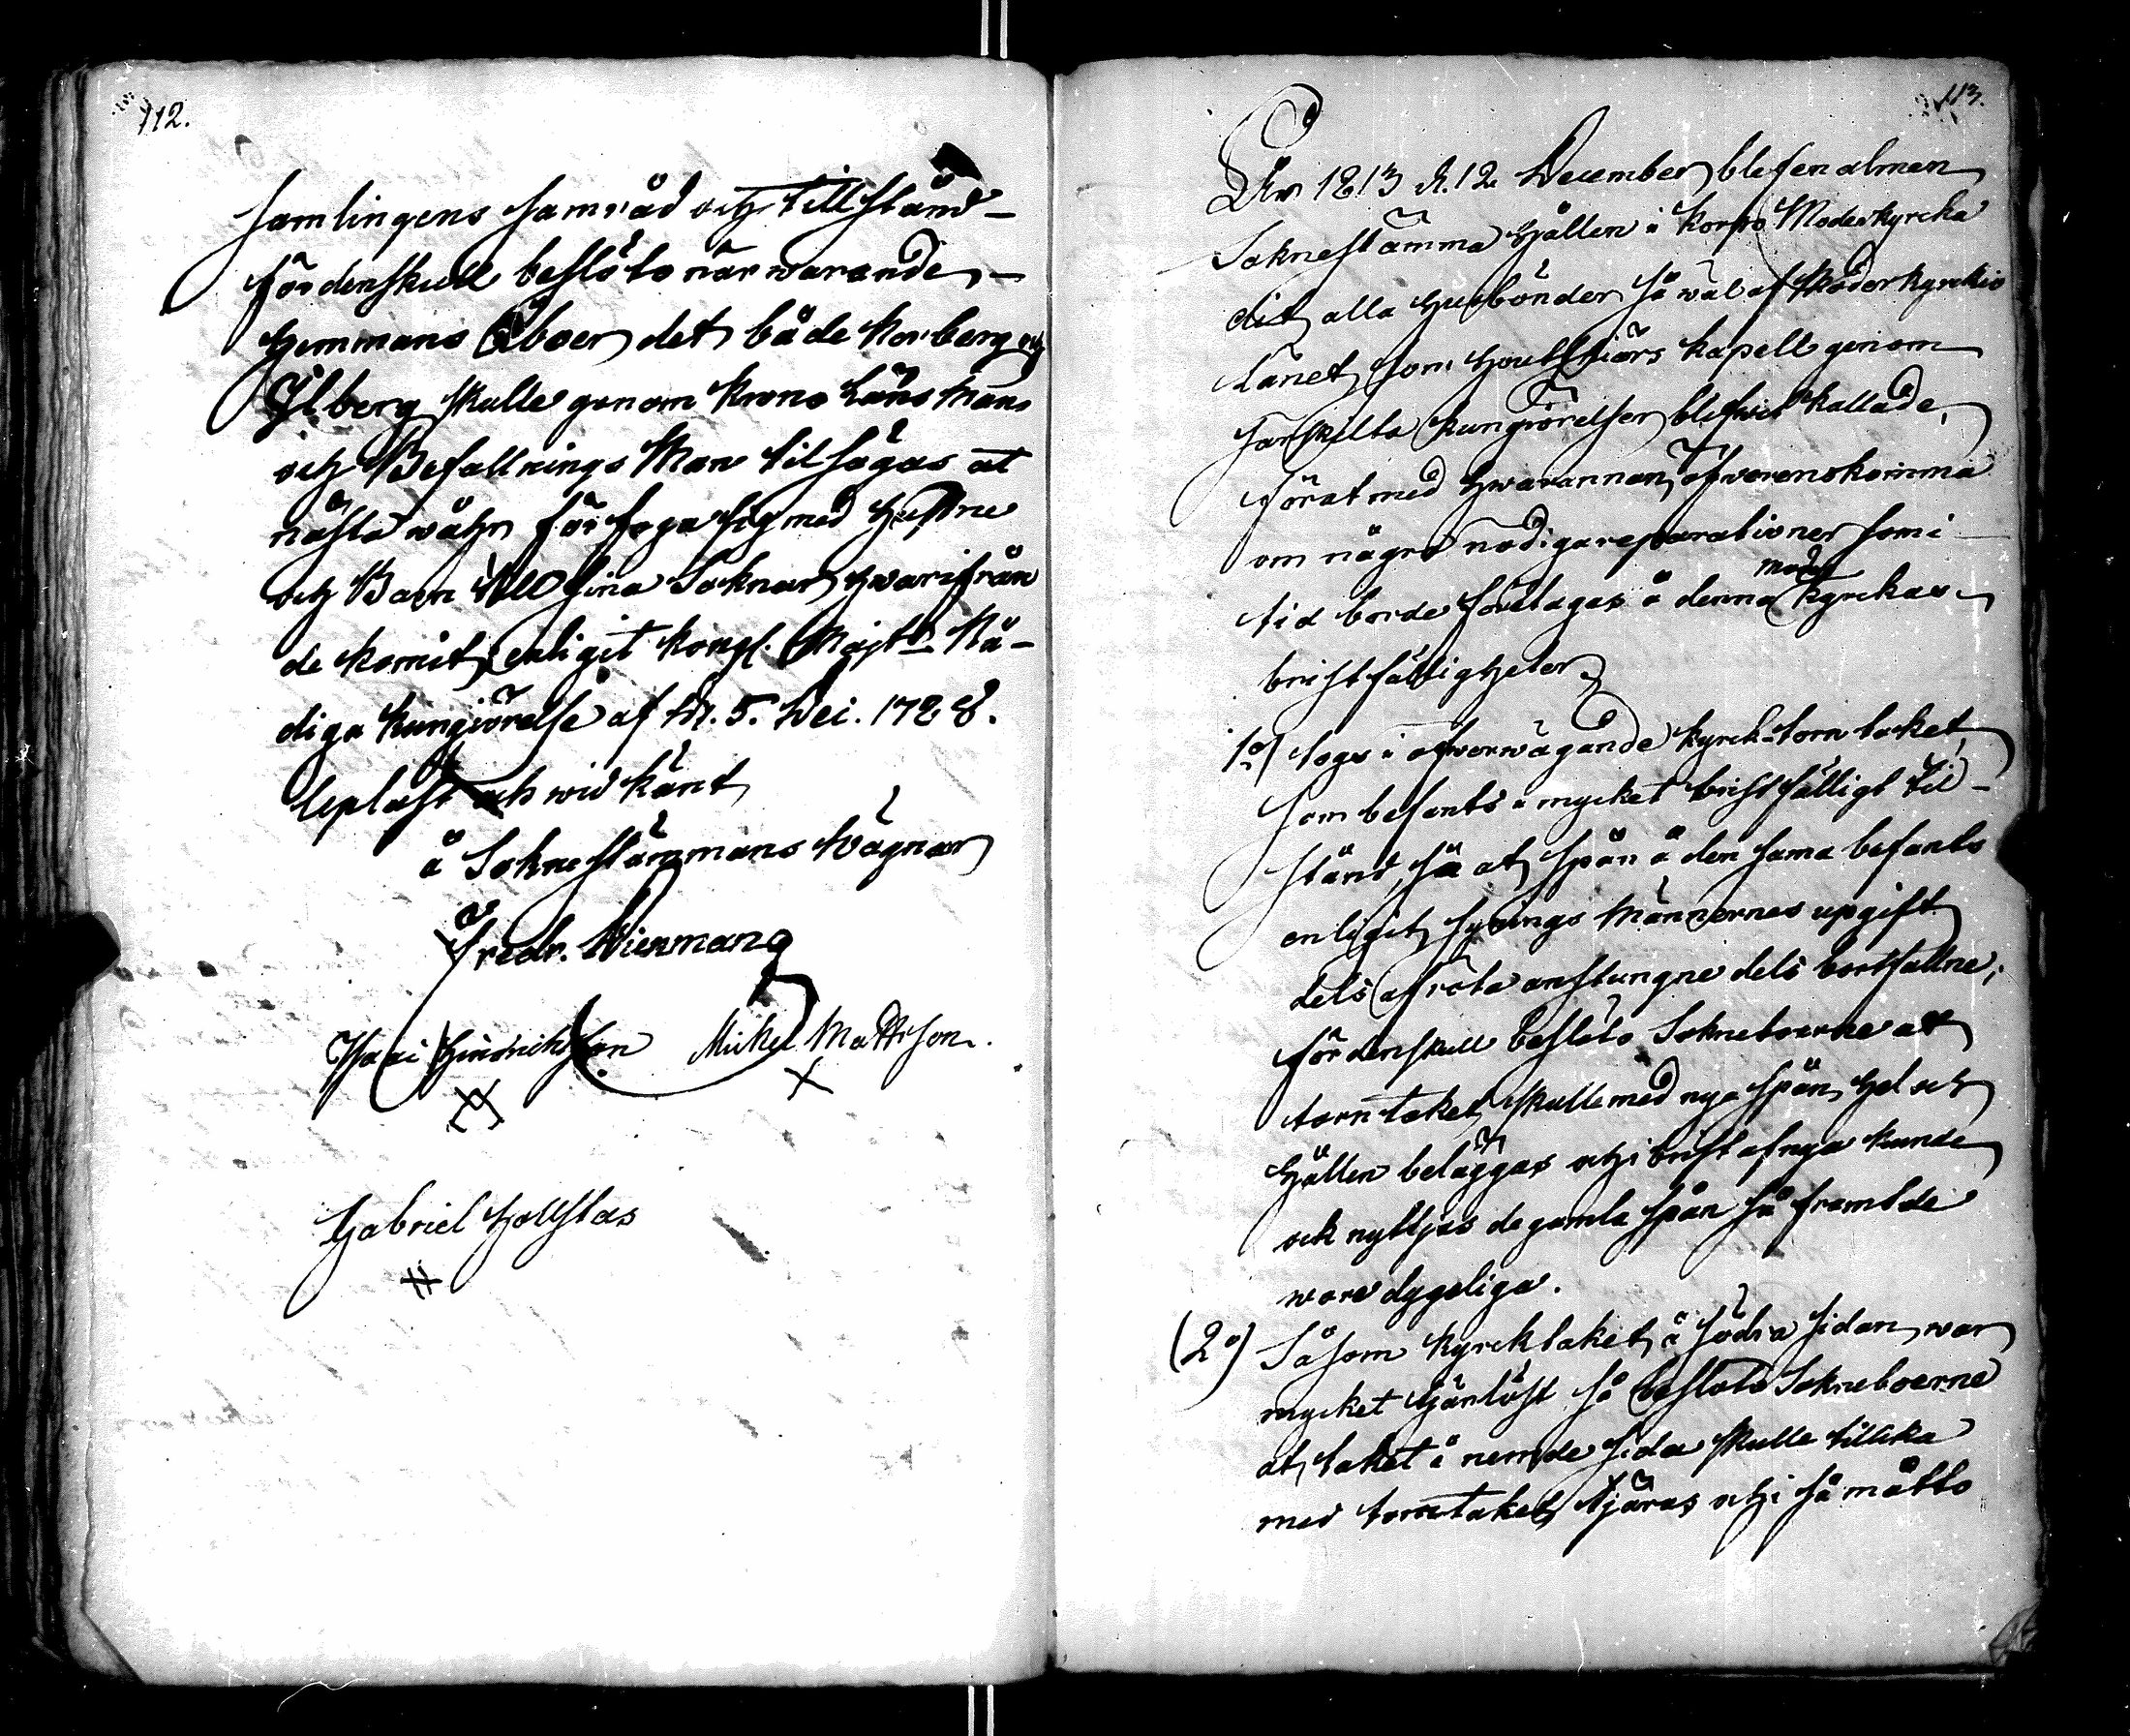 112.
samlingens samråd och tillstånd –
fördenskull beslöto närwarande –
Hemmans Åboer det både Korberg och
Ylberg skulle genom Krono Läns Man
och Befallnings Man tilsägas at
nästa wåhr förfoga sig med Hustrur
och Barn till sina Soknar hwarifrån
de komit, enligit Kongl. Majts Nå-
diga Kungiörelse af d. 5. Dec. 1728.
Uplæst och widkänt
å Soknestämmans Wägnar
Fredr. Wienmang
Isaac Hindrichsson Mickel Mattsson.
Gabriel Hollstas
113.
År 1813 d. 12 December blef en almen
Soknestämma hållen i Korpo Moderkyrcka
dit alla Husbönder så wäl af Moder kyrckio
länet som Houtskiärs Kapell genom
särskilta kungiörelser blefwit kallade,
för at med hwarannan öfwerenskomma
om några nödiga reparationer som i
tid borde företagas å denna moder kyrckas
bristfälligheter.
1o) togs i öfwerwägande kyrck-torn taket,
som befants i mycket bristfälligt til-
stånd, så at spån å den sama befants
enligit synings männernes upgift
dels af röta anstungne dels bortfallne;
fördenskull beslöto Sokneboerne at
torn taket skulle med nya spån hel och
hållen beläggas och i brist af nya kunde
ock nyttjas de gamla spån så framt de
wore dygeliga.
(2o) Såsom Kyrcktaket å södra sidan war
mycket tjärlöst så beslöto Sokneboerne
at taket å nemde sida skulle tillika
med torntaket tjäras och i så måtto